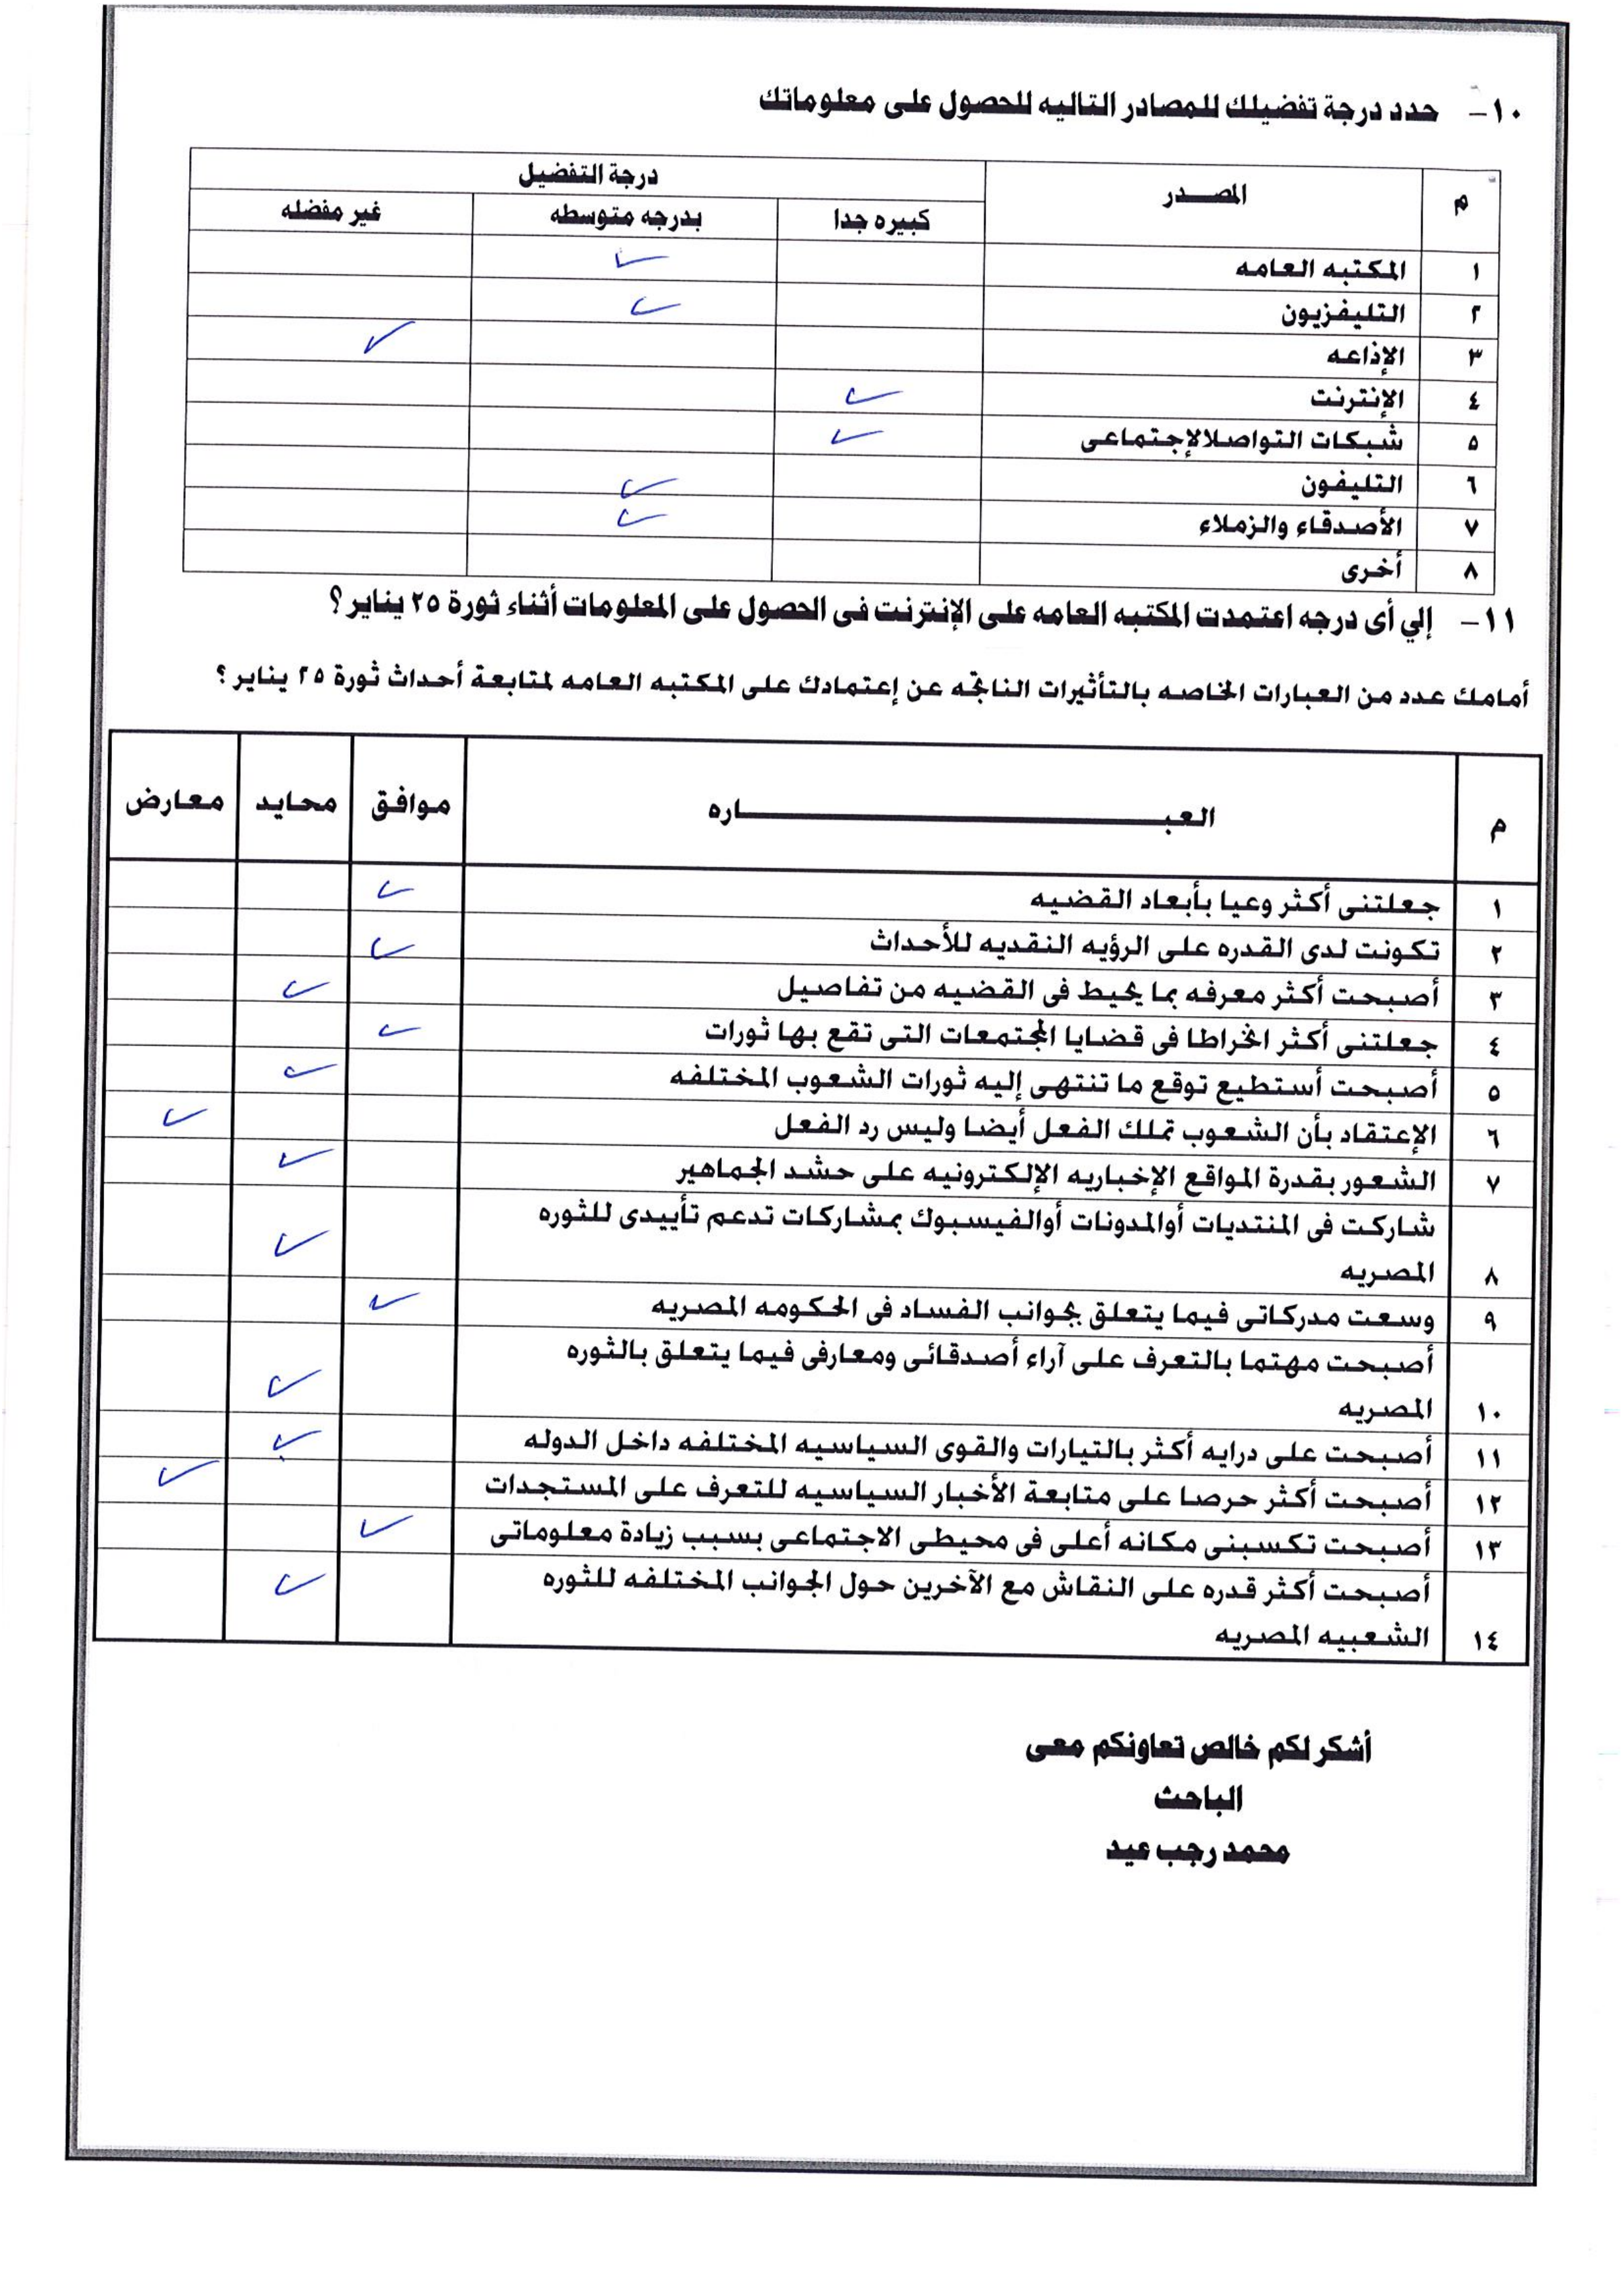 ١٠- حدد درجة تفضيلك للمصادر التاليه للحصول على معلوماتك
م المصـــدر درجة التفضيل
كبيره جدا بدرجه متوسطه غير مفضله
١ المكتبه العامه ✓
٢ التليفزيون ✓
٣ الإذاعه ✓
٤ الإنترنت ✓
٥ شبكات التواصلالإجتماعى ✓
٦ التليفون ✓
٧ الأصدقاء والزملاء ✓
٨ أخرى
١١- إلي أى درجه اعتمدت المكتبه العامه على الإنترنت فى الحصول على المعلومات أثناء ثورة ٢٥ يناير ؟
أمامك عدد من العبارات الخاصه بالتأثيرات الناتجه عن إعتمادك على المكتبه العامه لمتابعة أحداث ثورة ٢٥ يناير ؟
م العبـــــــــــــــــــــاره موافق محايد معارض
١ جعلتنى أكثر وعيا بأبعاد القضيه ✓
٢ تكونت لدى القدره على الرؤيه النقديه للأحداث ✓
٣ أصبحت أكثر معرفه بما يحيط فى القضيه من تفاصيل ✓
٤ جعلتنى أكثر انخراطا فى قضايا المجتمعات التى تقع بها ثورات ✓
٥ أصبحت أستطيع توقع ما تنتهى إليه ثورات الشعوب المختلفه ✓
٦ الإعتقاد بأن الشعوب تملك الفعل أيضا وليس رد الفعل ✓
٧ الشعور بقدرة المواقع الإخباريه الإلكترونيه على حشد الجماهير ✓
شاركت فى المنتديات أوالمدونات أوالفيسبوك بمشاركات تدعم تأييدى للثوره
٨ المصريه ✓
٩ وسعت مدركاتى فيما يتعلق بجوانب الفساد فى الحكومه المصريه ✓
أصبحت مهتما بالتعرف على آراء أصدقائى ومعارفى فيما يتعلق بالثوره
١٠ المصريه ✓
١١ أصبحت على درايه أكثر بالتيارات والقوى السياسيه المختلفه داخل الدوله ✓
١٢ أصبحت أكثر حرصا على متابعة الأخبار السياسيه للتعرف على المستجدات ✓
١٣ أصبحت تكسبنى مكانه أعلى فى محيطى الاجتماعى بسبب زيادة معلوماتى ✓
أصبحت أكثر قدره على النقاش مع الآخرين حول الجوانب المختلفه للثوره ✓
١٤ الشعبيه المصريه
أشكر لكم خالص تعاونكم معى
الباحث
محمد رجب عيد